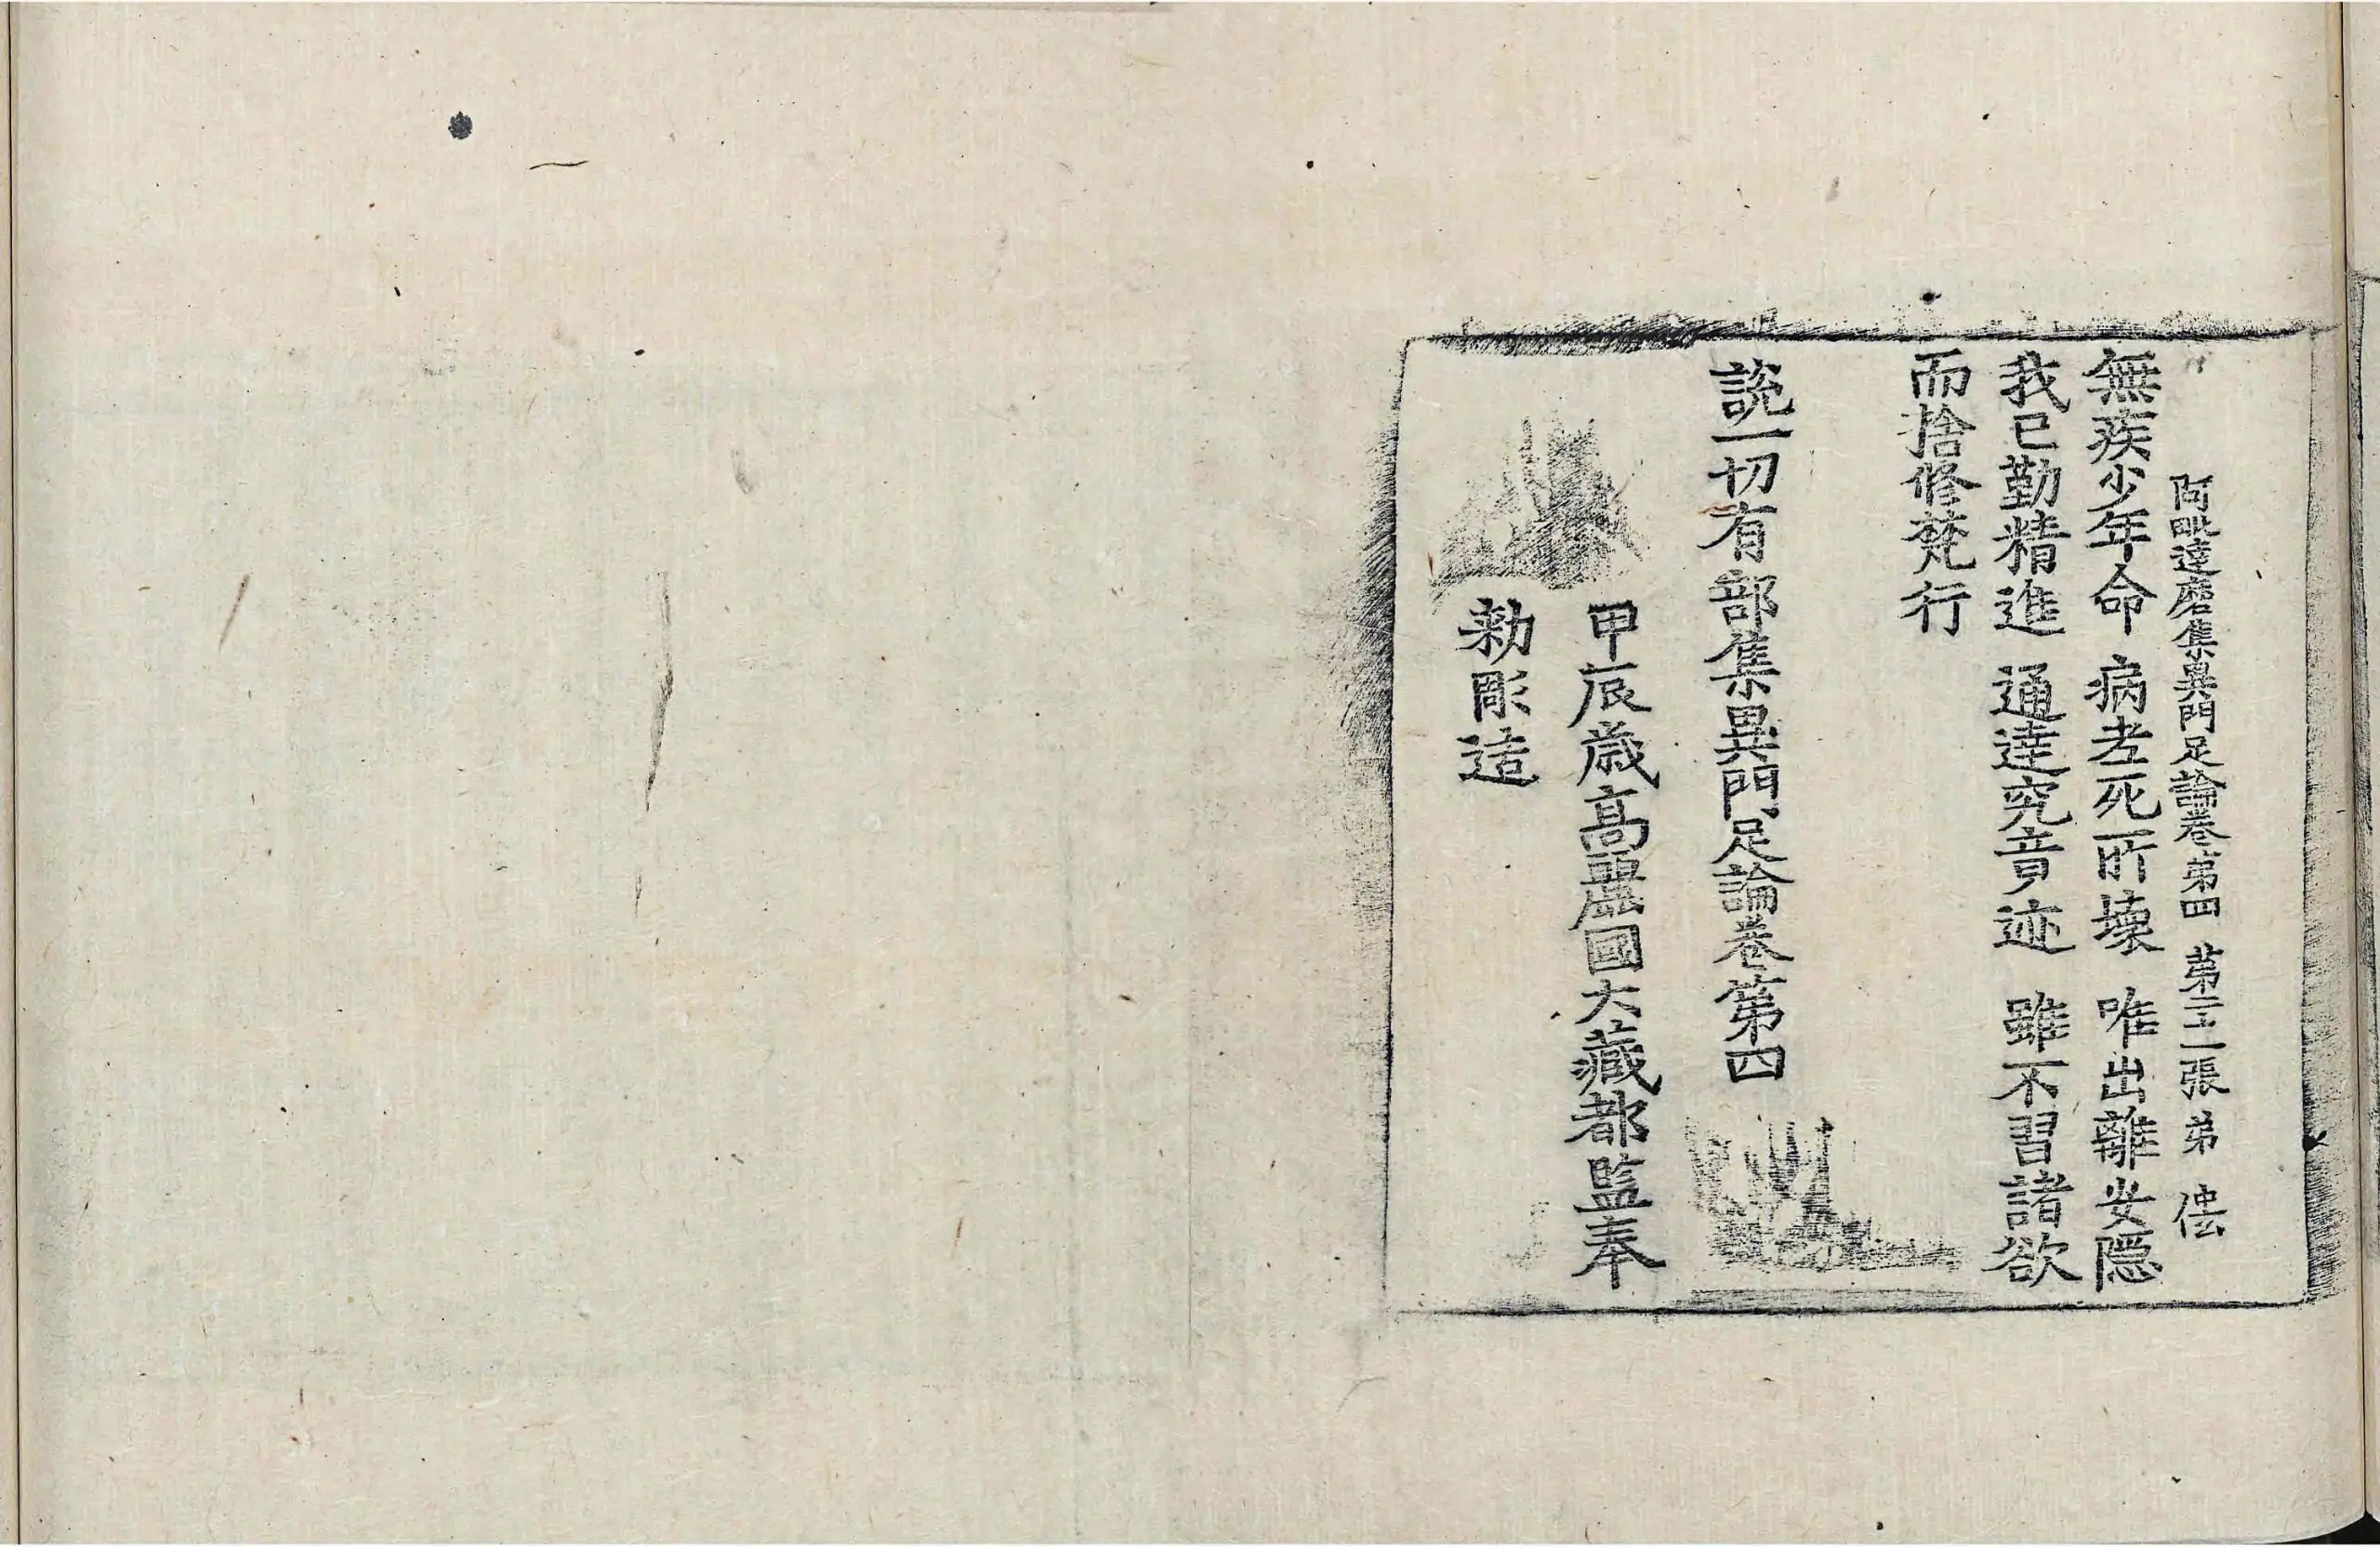 阿毗達磨集異門足論卷第四　第二十二張　弟
無疾少年命　病老死所壞　唯出離安隱
我已勤精進　通達究竟迹　雖不習諸欲
而捨修梵行
說一切有部集異門足論卷第四
甲辰歲高麗國大藏都監奉
勅彫造